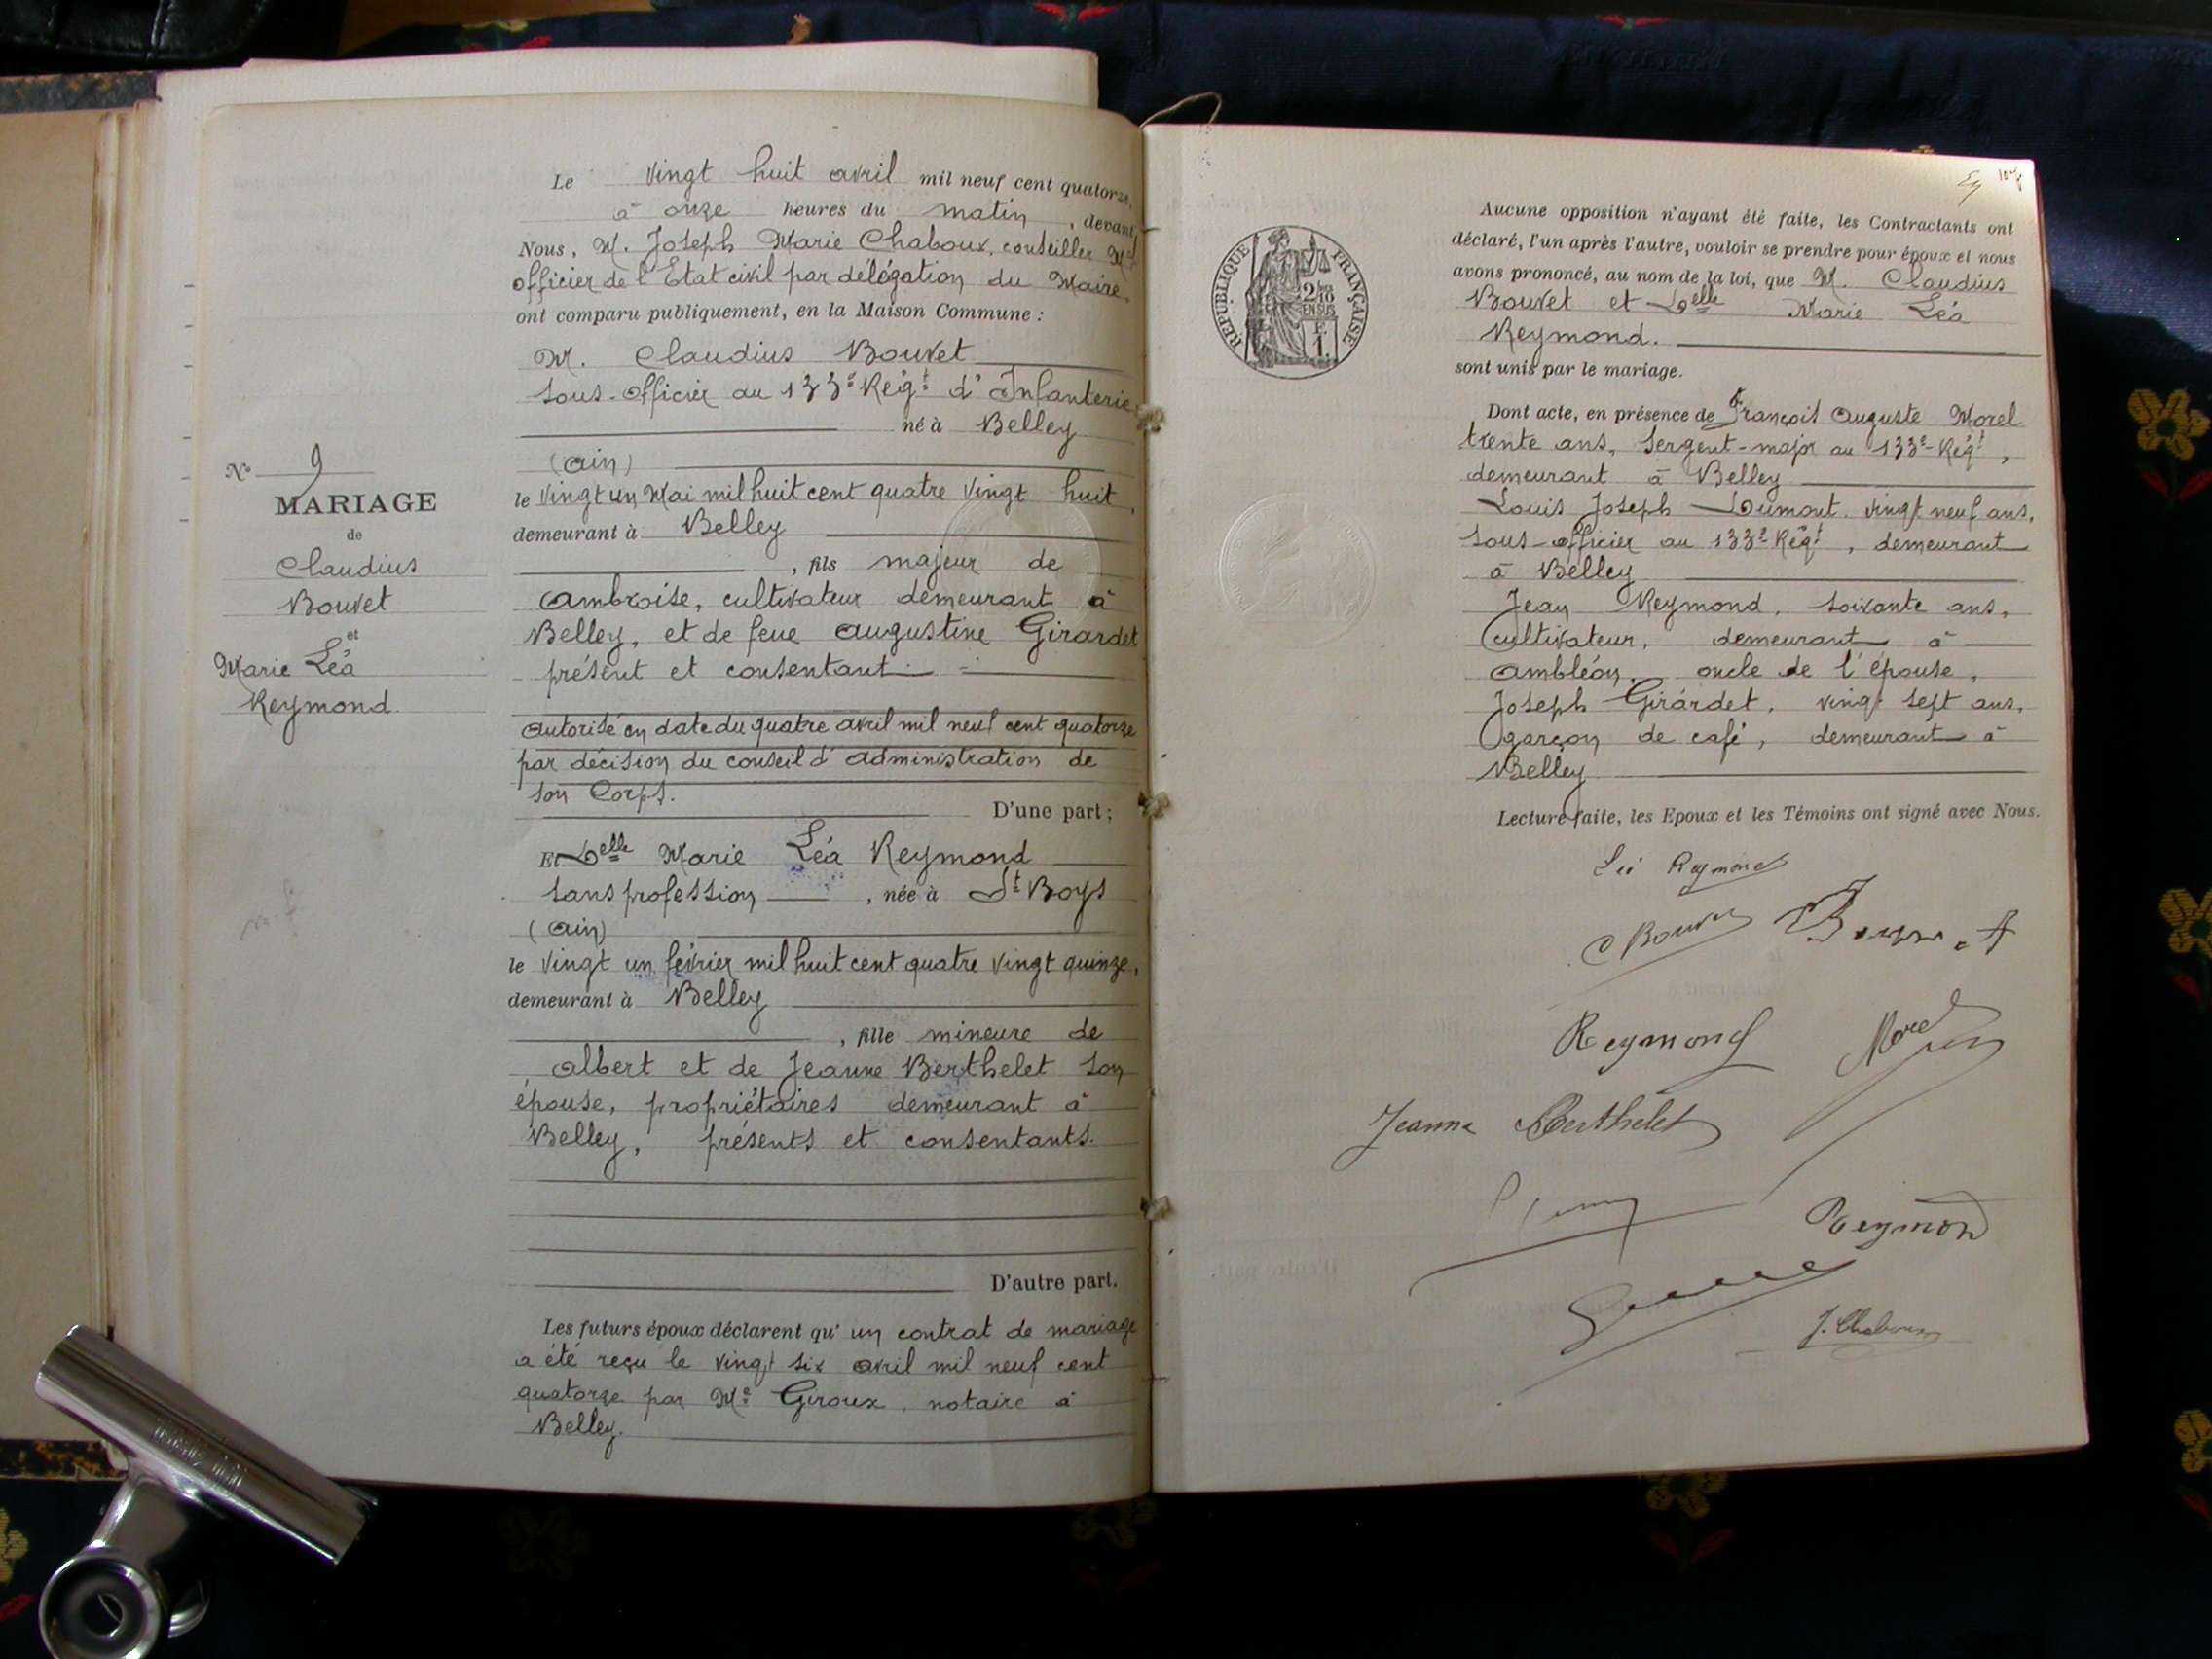 Le vingt huit avril mil neuf cent quatorze,
à onze heures du matin, devant
Nous, M. Joseph Marie Chaboux, conseiller Mal
officier de l'Etat civil par délégation du Maire,
ont comparu publiquement, en la Maison Commune :
M. Claudius Bouvet
sous-officier au 133e Régt d'Infanterie
né à Belley
(Ain)
le vingt un Mai mil huit cent quatre vingt huit,
demeurant à Belley
, fils majeur de
Ambroise, cultivateur demeurant à
Belley, et de feue Augustine Girardet
présent et consentant
autorisé en date du quatre avril mil neuf cent quatorze
par décision du conseil d'administration de
son Corps.
D'une part ;
Et Delle Marie Léa Reymond
sans profession, née à St Boys
(Ain)
le vingt un février mil huit cent quatre vingt quinze,
demeurant à Belley
, fille mineure de
Albert et de Jeanne Berthelet son
épouse, propriétaires demeurant à
Belley, présents et consentants.
D'autre part.
Les futurs époux déclarent qu'un contrat de mariage
a été reçu le vingt six avril mil neuf cent
quatorze par Me Giroux, notaire à
Belley.
No 9
MARIAGE
de
Claudius
Bouvet
et
Marie Léa
Reymond.
RÉPUBLIQUE FRANÇAISE
2/10
EN SUS
F.
1.
Aucune opposition n'ayant été faite, les Contractants ont
déclaré, l'un après l'autre, vouloir se prendre pour époux et nous
avons prononcé, au nom de la loi, que M. Claudius
Bouvet et Delle Marie Léa
Reymond.
sont unis par le mariage.
Dont acte, en présence de François Auguste Morel
trente ans, sergent-major au 133e Régt,
demeurant à Belley
Louis Joseph Dumont vingt neuf ans,
sous-officier au 133e Régt, demeurant
à Belley
Jean Reymond, soixante ans,
cultivateur, demeurant à
Ambléon, oncle de l'épouse,
Joseph Girardet, vingt sept ans,
garçon de café, demeurant à
Belley
Lecture faite, les Epoux et les Témoins ont signé avec Nous.
Léa Reymond
C Bouvet
Reymond Morel
Jeanne Berthelet
Reymond
J. Chaboux